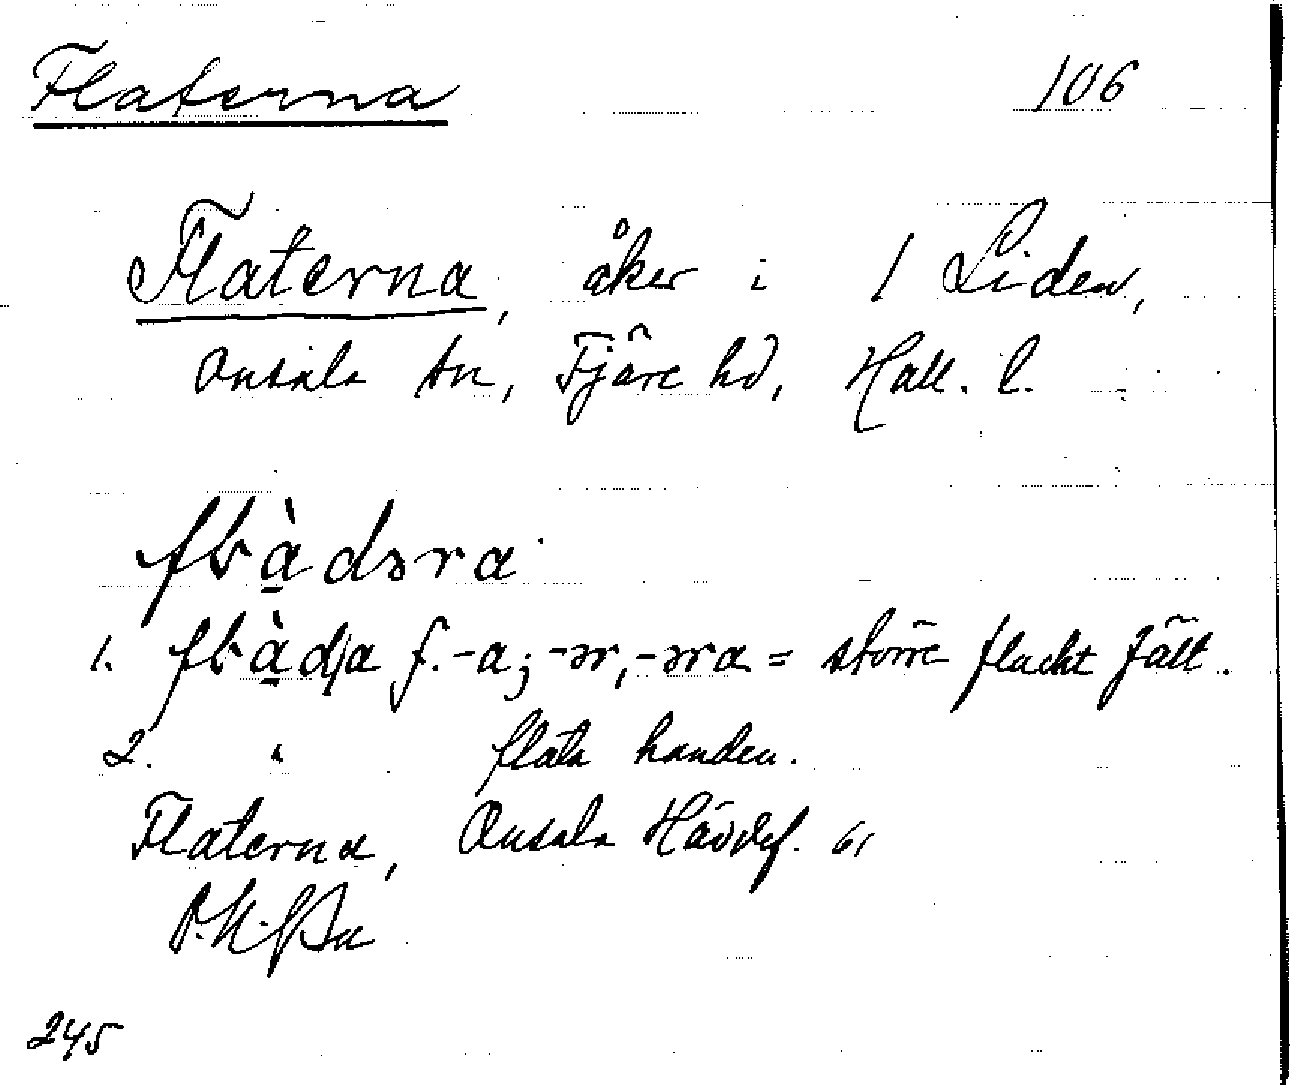 Flaterna 106
Flaterna, åker i 1 Liden,
Onsala sn, Fjäre hd, Hall. l.
flàdəra
1. flàdja f. -a; -ər, -əra = större flackt fält.
2. " flata handen.
Flaterna, Onsala Hävdef.
245